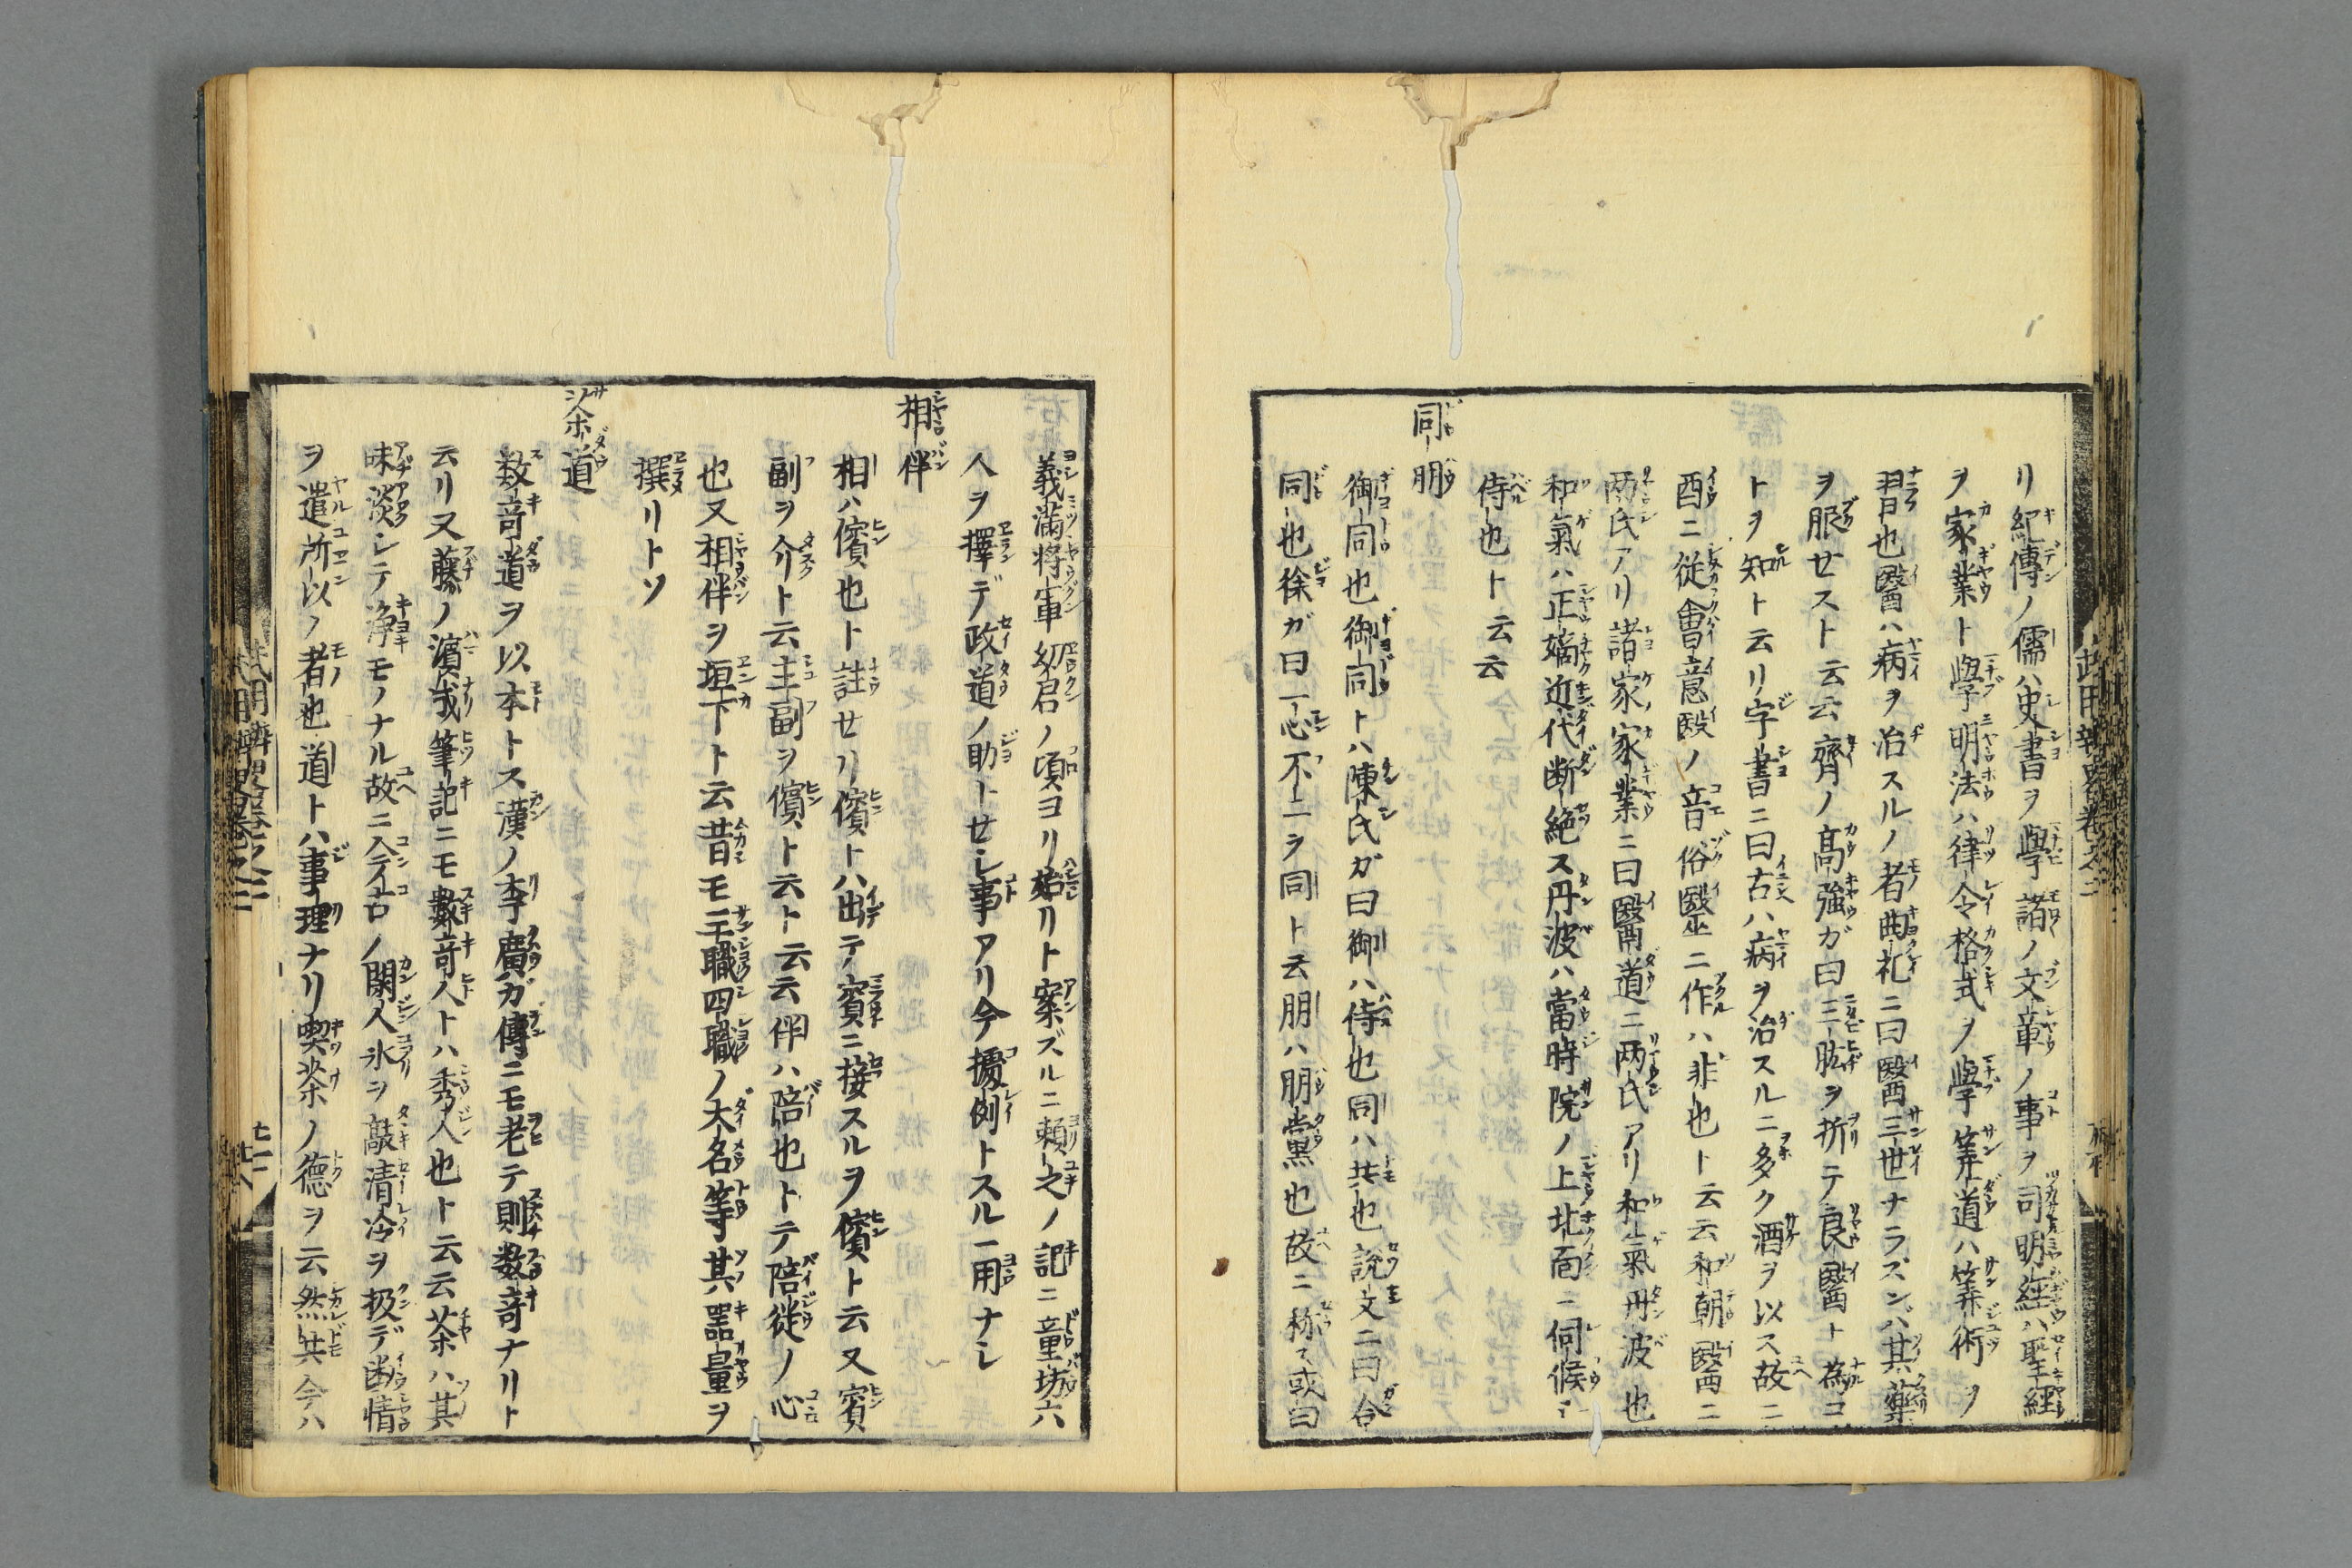 リ紀傳ノ儒ハ史書ヲ學諸ノ文章ノ事ヲ司明經ハ聖經
ヲ家業ト學明法ハ律令格式ヲ學筭道ハ筭術ヲ
習也醫ハ病ヲ治スルノ者曲礼ニ曰醫三世ナラズンバ其藥
ヲ服せスト云云齊ノ高強ガ曰三肱ヲ折テ良醫ト為コ
トヲ知ト云リ字書ニ曰古ハ病ヲ治スルニ多ク酒ヲ以ス故ニ
酉ニ從會意醫ノ音俗毉巫ニ作ハ非也ト云云和朝醫ニ
両氏アリ諸家家業ニ曰醫道ニ両氏アリ和氣丹波也
和氣ハ正嫡近代断絶ス丹波ハ當時院ノ上北面ニ伺候シ
侍也ト云云
同朋
御同也御同トハ陳氏ガ曰御ハ侍也同ハ共也説文ニ曰合
同也徐ガ曰一心不二ヲ同ト云朋ハ朋黨也故ニ称ス或曰
義滿将軍幼君ノ頃ヨリ始リト案ズルニ頼之ノ記ニ童坊六
人ヲ擇デ政道ノ助トせシ事アリ今擾例トスル一用ナシ
相伴
相ハ儐也ト註せリ儐トハ出テ賓ニ接スルヲ儐ト云又賓
副ヲ介ト云主副ヲ儐ト云ト云云伴ハ陪也トテ陪從ノ心
也又相伴ヲ垣下ト云昔モ三職四職ノ大名等其噐量ヲ
撰リトソ
茶道
数竒道ヲ以本トス漢ノ李廣ガ傳ニモ老テ則数竒ナリト
云リ又藤ノ濱成筆記ニモ數竒人トハ秀人也ト云云茶ハ其
味淡シテ浄モノナル故ニ今古ノ閑人氷ヲ敲清冷ヲ扱デ幽情
ヲ遣所以ノ者也道トハ事理ナリ喫茶ノ德ヲ云然共今ハ